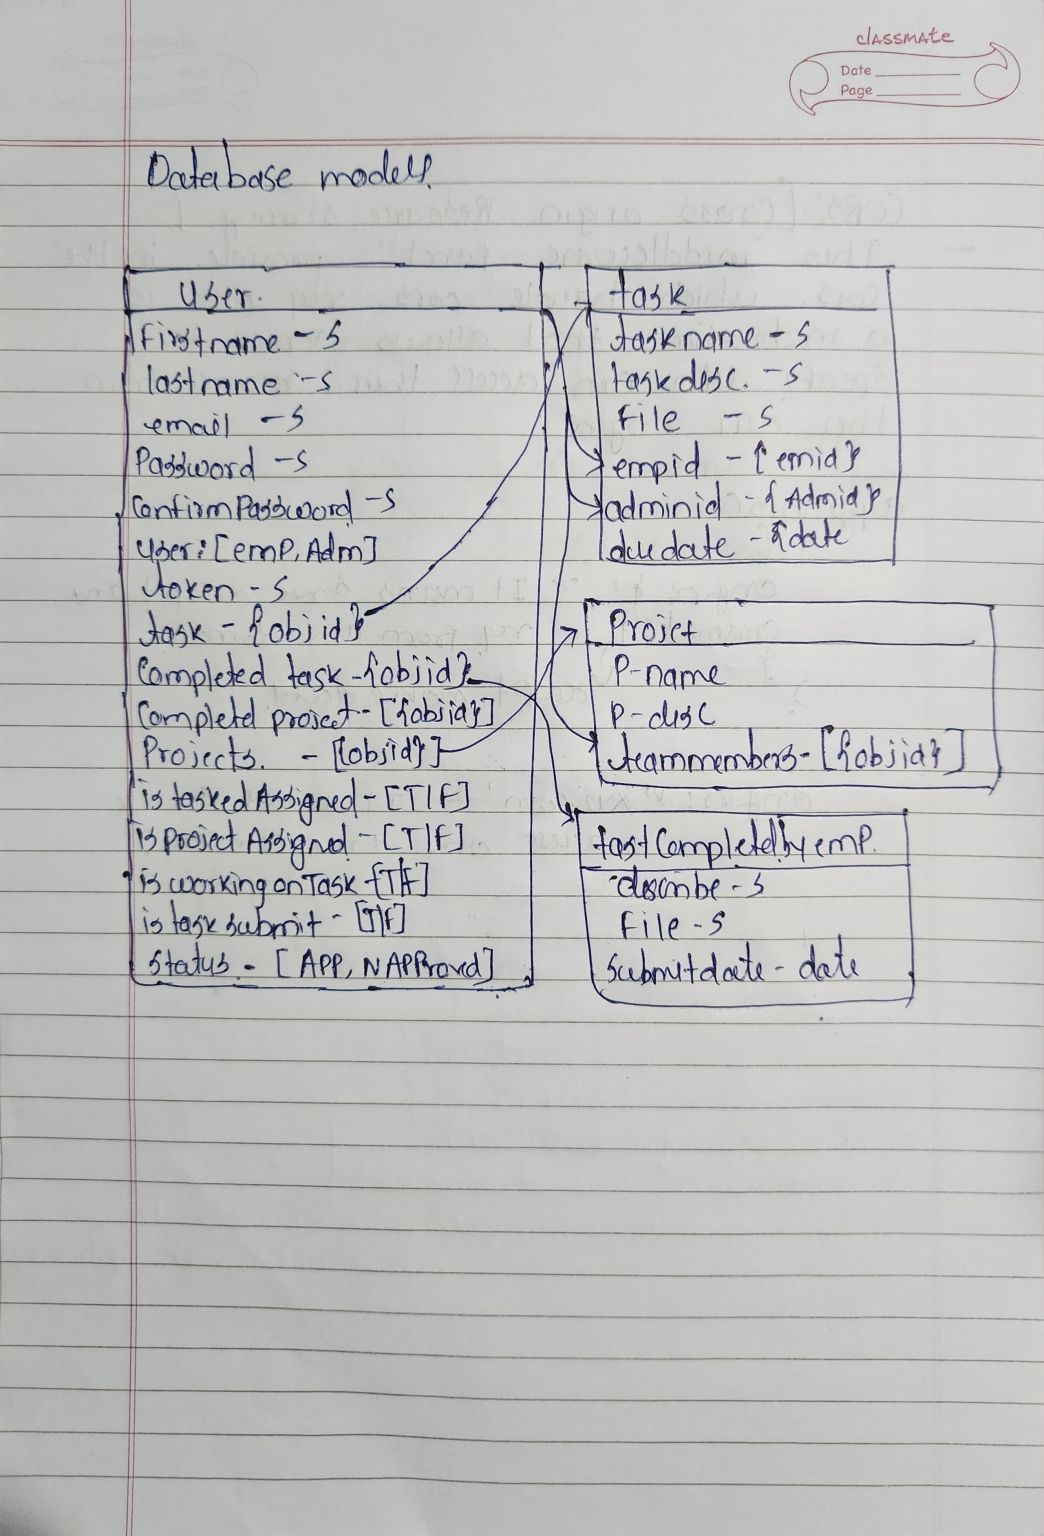 classmate
Date
Page
Database models.
User.
firstname - S
lastname - S
email - S
Password - S
ConfirmPassword - S
User: [emp, Adm]
token - S
task - {objid}
Completed task - {objid}
Completd project - [{objid}]
Projects. - [{objid}]
is tasked Assigned - [T|F]
is project Assigned - [T|F]
is working on Task - [T|F]
is task submit - [T|F]
Status - [APP, NAPProved]
task
taskname - S
task disc. - S
File - S
empid - {emid}
adminid - {Admid}
duedate - {date
Projct
P-name
P-disc
teammembers - [{objid}]
tastCompletedbyemp.
describe - S
File - S
Submitdate - date